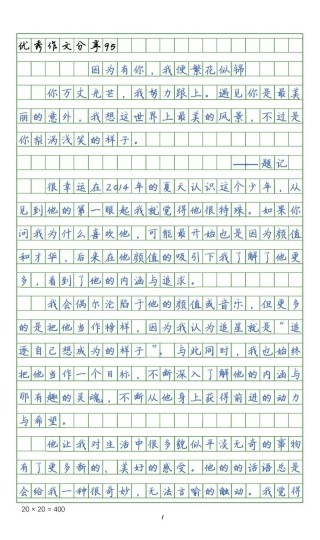 优秀作文分享95
因为有你，我便繁花似锦
你万丈光芒，我努力跟上。遇见你是最美
丽的意外，我想这世界上最美的风景，不过是
你梨涡浅笑的样子。
——题记
很幸运在2014年的夏天认识这个少年，从
见到他的第一眼起我就觉得他很特殊。如果你
问我为什么喜欢他，可能最开始也是因为颜值
和才华，后来在他颜值的吸引下我了解了他更
多，看到了他的内涵与追求。
我会偶尔沦陷于他的颜值或音乐，但更多
的是把他当作榜样，因为我认为追星就是“追
逐自己想成为的样子”。与此同时，我也始终
把他当作一个目标，不断深入了解他的内涵与
那有趣的灵魂，不断从他身上获得前进的动力
与希望。
他让我对生活中很多貌似平淡无奇的事物
有了更多新的、美好的感受。他的的话语总是
会给我一种很奇妙，无法言喻的触动。我觉得
20 × 20 = 400
1